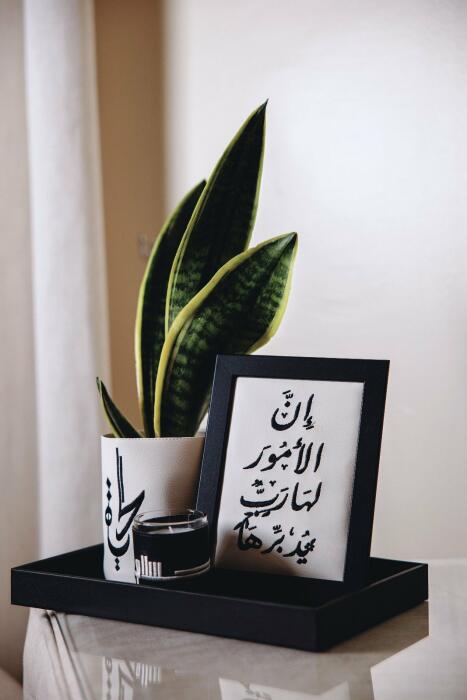 إِنَّ
الأمُورَ
لهَا رَبٌّ
يُدبِّرهَا
الحياة